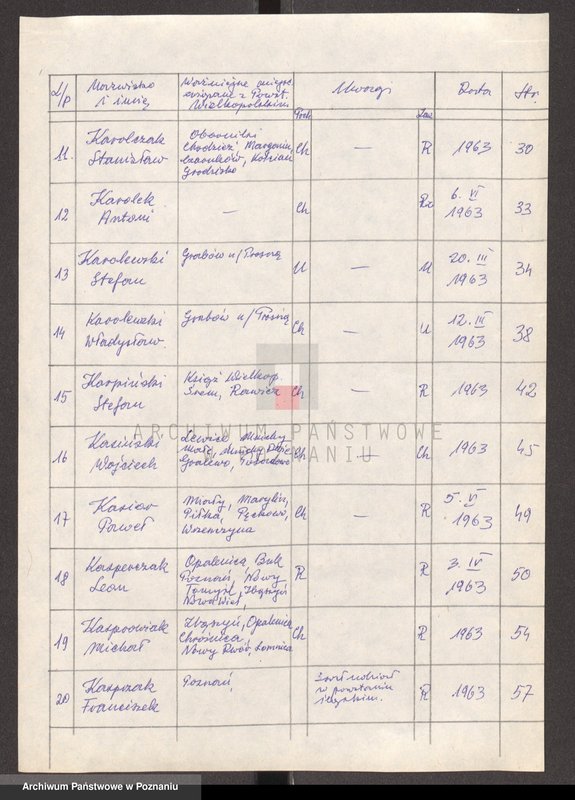 L/p Nazwisko i imię Ważniejsze miejsc. związane z Powst. Wielkopolskim Uwagi Data Str.
Poch Zaw
11. Karolczak Stanisław Oborniki Chodzież, Margonin, Czarnków, Kościan Grodzisko Ch — R 1963 30
12 Karolek Antoni — Ch Rz 6. VI 1963 33
13 Karolewski Stefan Grabów n/Prosną U — U 20. III 1963 34
14 Karolewski Władysław Grabów n/Prosną Ch — U 12. III 1963 38
15 Karpiński Stefan Książ Wielkop. Śrem, Rawicz Ch — R 1963 42
16 Wojciech Lewice Ch — Ch 1963 45
17 Paweł Miały, Marylin, Piłka, Pęckowo, Wrzeszczyna Ch — R 5. VI 1963 49
18 Kasperczak Leon Opalenica Buk Poznań, Nowy Tomyśl, Zbąszyń Nowa Wieś, R R 3. IV 1963 50
19 Michał Zbąszyń, Opalenica Chrośnica, Nowy Dwór, Łomnica Ch R 1963 54
20 Kasprzak Franciszek Poznań, w powstaniu R 1963 57
ARCHIWUM PAŃSTWOWE
W POZNANIU
Archiwum Państwowe w Poznaniu